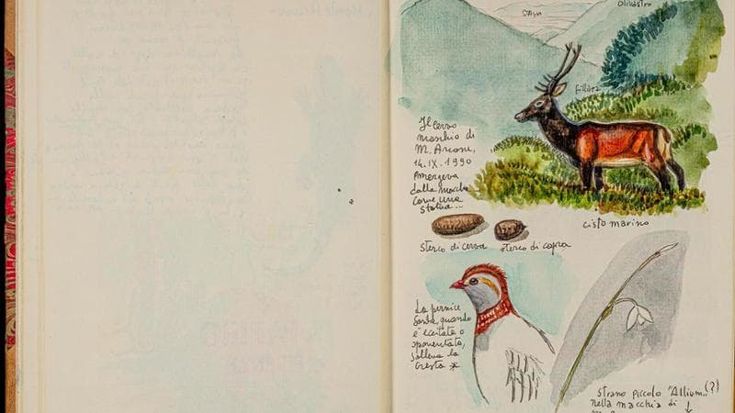 Olivastro
fillirea
Il cervo
maschio di
M. Arcosu,
14. IX. 1990
Emergeva
dalla macchia
come una
statua...
cisto marino
sterco di cerva
sterco di capra
La pernice
sarda, quando
è eccitata o
spaventata,
solleva la
cresta *
strano piccolo "Allium" (?)
nella macchia di